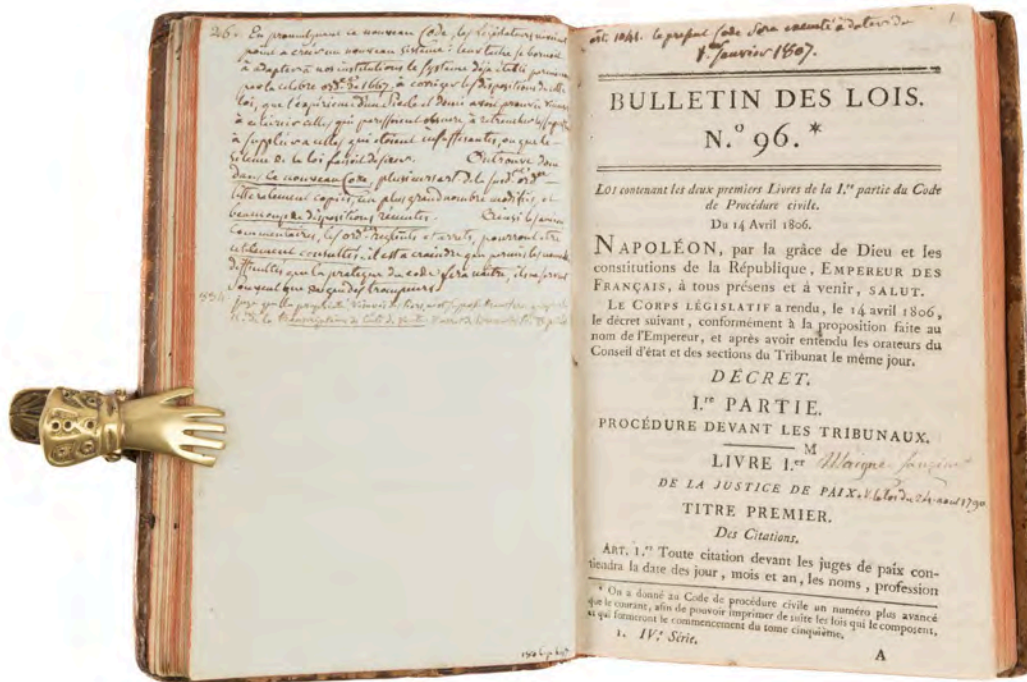 26.
En promulguant ce nouveau Code, les législateurs n'avoient
point à créer un nouveau sistème: leur tache se bornoit
à adapter à nos institutions le systeme déja établi
par la célebre ord.ce de 1667, à corriger les dispositions de cette
loi, que l'expérience d'un siecle et demi avoit prouvé
à éclaircir celles qui paroissoient obscure à retrancher
à suppléer à celles qui étoient insuffisantes, ou que le
silence de la loi faisoit désirer. On trouve donc
dans le nouveau Code, plusieurs art. de la ord.ce
litteralement copiés, un plus grand nombre modifiés, et
beaucoup de dispositions recentes. Ainsi les
commentaires, les ord. et arrets, pourront être
utilement consultés. il est a craindre que parmi les
difficultés que la pratique du code fera naitre, ils ne seront
souvent que des guides trompeurs
834.
de la transcription
art. 1041. le présent Code sera exécuté à dater du
1.er Janvier 1807.
1
BULLETIN DES LOIS.
N.º 96. *
LOI contenant les deux premiers Livres de la I.re partie du Code
de Procédure civile.
Du 14 Avril 1806.
NAPOLÉON, par la grâce de Dieu et les
constitutions de la République, EMPEREUR DES
FRANÇAIS, à tous présens et à venir, SALUT.
LE CORPS LÉGISLATIF a rendu, le 14 avril 1806,
le décret suivant, conformément à la proposition faite au
nom de l'Empereur, et après avoir entendu les orateurs du
Conseil d'état et des sections du Tribunat le même jour.
DÉCRET.
I.re PARTIE.
PROCÉDURE DEVANT LES TRIBUNAUX.
M
LIVRE I.er Maigne
DE LA JUSTICE DE PAIX. V. la loi du 24 aout 1790
TITRE PREMIER.
Des Citations.
ART. 1.er Toute citation devant les juges de paix con-
tiendra la date des jour, mois et an, les noms, profession
* On a donné au Code de procédure civile un numéro plus avancé
que le courant, afin de pouvoir imprimer de suite les lois qui le composent,
et qui formeront le commencement du tome cinquième.
1. IV.e Série.
A